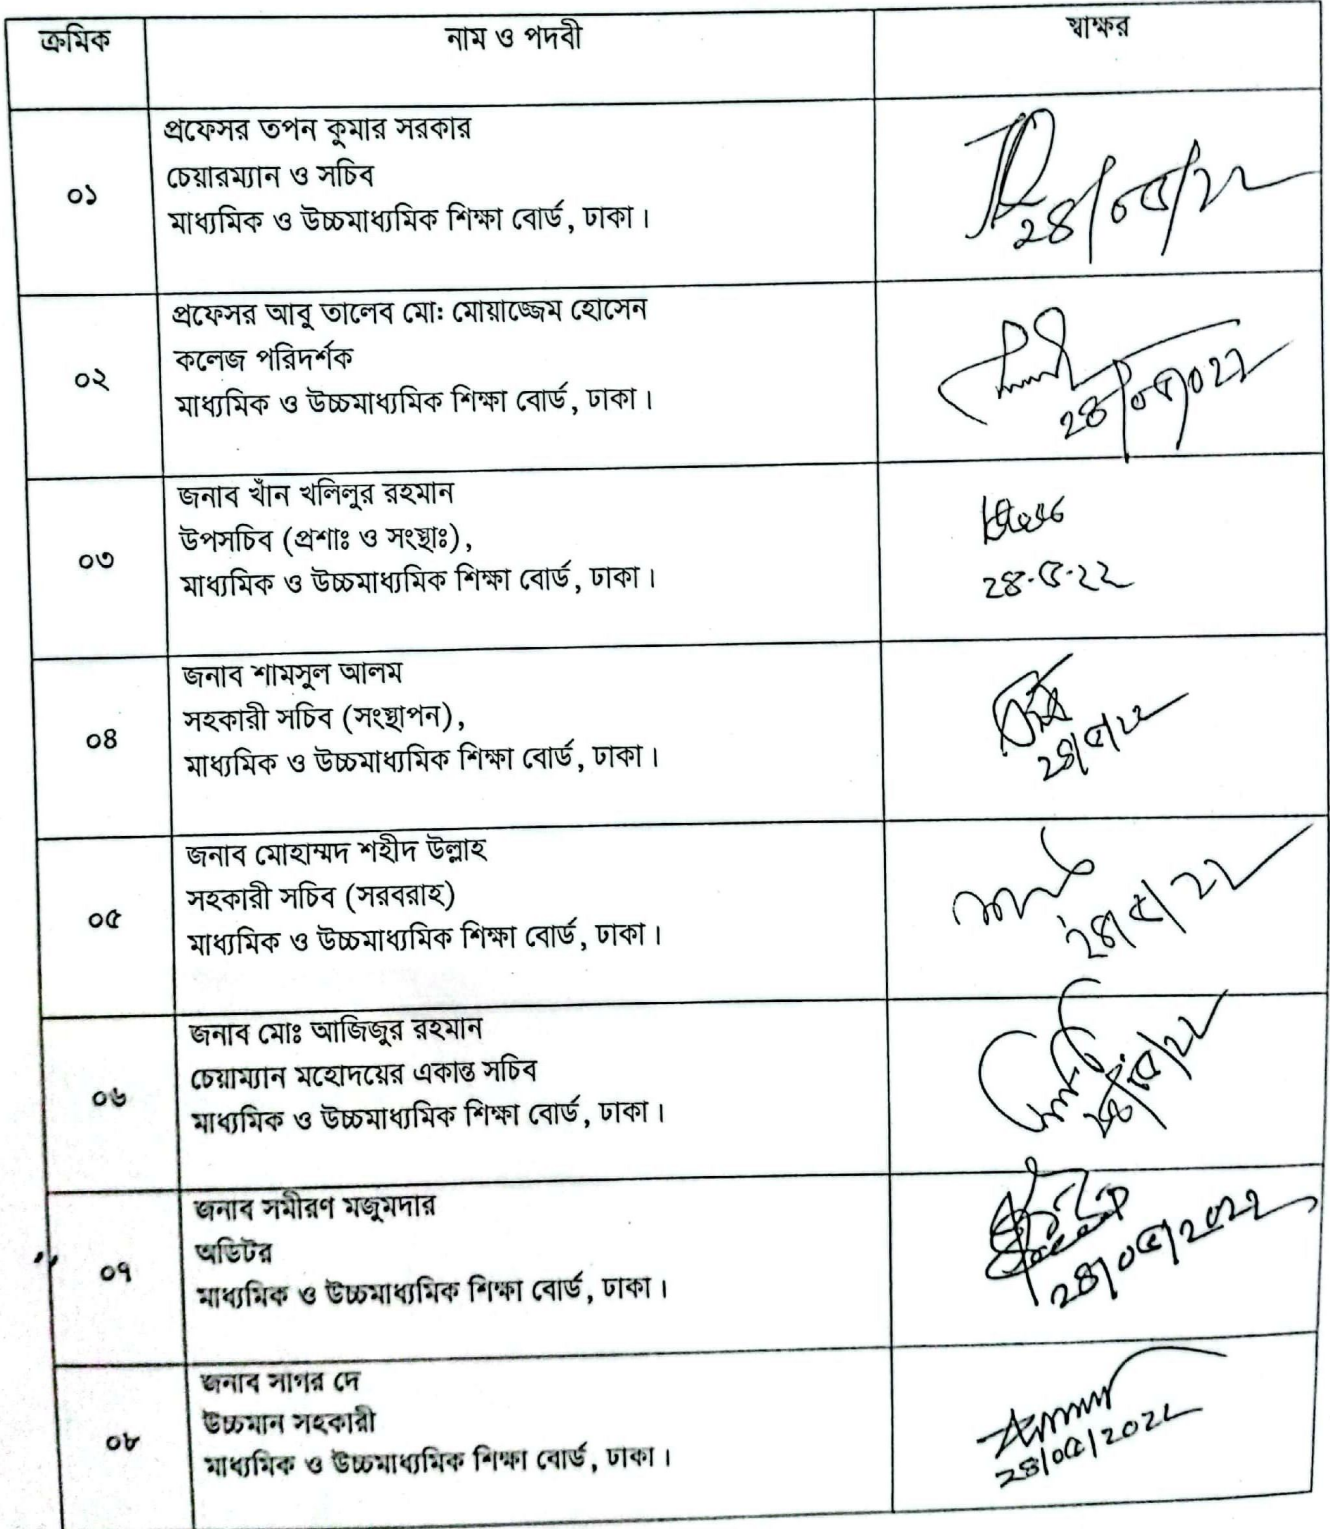 ক্রমিক
নাম ও পদবী
স্বাক্ষর
০১
প্রফেসর তপন কুমার সরকার
চেয়ারম্যান ও সচিব
মাধ্যমিক ও উচ্চমাধ্যমিক শিক্ষা বোর্ড, ঢাকা।
২৪/০৫/২২
০২
প্রফেসর আবু তালেব মো: মোয়াজ্জেম হোসেন
কলেজ পরিদর্শক
মাধ্যমিক ও উচ্চমাধ্যমিক শিক্ষা বোর্ড, ঢাকা।
২৪/০৫/০২২
০৩
জনাব খাঁন খলিলুর রহমান
উপসচিব (প্রশাঃ ও সংস্থাঃ),
মাধ্যমিক ও উচ্চমাধ্যমিক শিক্ষা বোর্ড, ঢাকা।
২৪.৫.২২
০৪
জনাব শামসুল আলম
সহকারী সচিব (সংস্থাপন),
মাধ্যমিক ও উচ্চমাধ্যমিক শিক্ষা বোর্ড, ঢাকা।
২৪/৫/২২
০৫
জনাব মোহাম্মদ শহীদ উল্লাহ
সহকারী সচিব (সরবরাহ)
মাধ্যমিক ও উচ্চমাধ্যমিক শিক্ষা বোর্ড, ঢাকা।
২৪/৫/২২
০৬
জনাব মোঃ আজিজুর রহমান
চেয়াম্যান মহোদয়ের একান্ত সচিব
মাধ্যমিক ও উচ্চমাধ্যমিক শিক্ষা বোর্ড, ঢাকা।
২৪/০৫/২২
০৭
জনাব সমীরণ মজুমদার
অডিটর
মাধ্যমিক ও উচ্চমাধ্যমিক শিক্ষা বোর্ড, ঢাকা।
২৪/০৫/২০২২
০৮
জনাব সাগর দে
উচ্চমান সহকারী
মাধ্যমিক ও উচ্চমাধ্যমিক শিক্ষা বোর্ড, ঢাকা।
২৪/০৫/২০২২